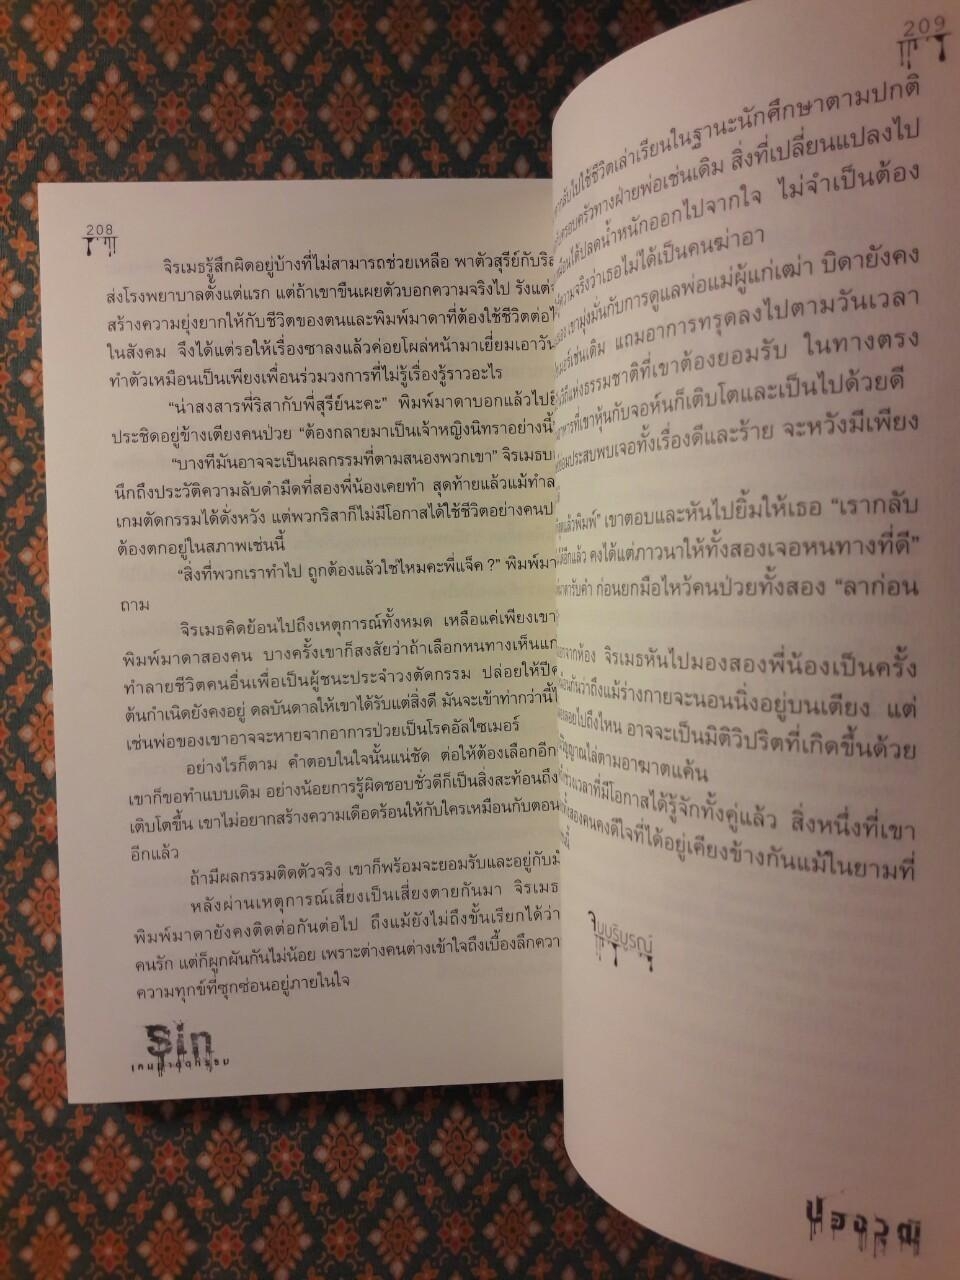 208
จิรเมธรู้สึกผิดอยู่บ้างที่ไม่สามารถช่วยเหลือ พาตัวสุรีย์กับริส
ส่งโรงพยาบาลตั้งแต่แรก แต่ถ้าเขาขืนเผยตัวบอกความจริงไป รังแต่จ
สร้างความยุ่งยากให้กับชีวิตของตนและพิมพ์มาดาที่ต้องใช้ชีวิตต่อไป
ในสังคม จึงได้แต่รอให้เรื่องซาลงแล้วค่อยโผล่หน้ามาเยี่ยมเอาวัน
ทำตัวเหมือนเป็นเพียงเพื่อนร่วมวงการที่ไม่รู้เรื่องรู้ราวอะไร
“น่าสงสารพี่ริสากับพี่สุรีย์นะคะ” พิมพ์มาดาบอกแล้วไปยื
ประชิดอยู่ข้างเตียงคนป่วย “ต้องกลายมาเป็นเจ้าหญิงนิทราอย่างนี้
“บางทีมันอาจจะเป็นผลกรรมที่ตามสนองพวกเขา” จิรเมธบ
นึกถึงประวัติความลับดำมืดที่สองพี่น้องเคยทำ สุดท้ายแล้วแม้ทำล
เกมตัดกรรมได้ดั่งหวัง แต่พวกริสาก็ไม่มีโอกาสได้ใช้ชีวิตอย่างคนป
ต้องตกอยู่ในสภาพเช่นนี้
“สิ่งที่พวกเราทำไป ถูกต้องแล้วใช่ไหมคะพี่แจ็ค ?” พิมพ์มา
ถาม
จิรเมธคิดย้อนไปถึงเหตุการณ์ทั้งหมด เหลือแค่เพียงเขา
พิมพ์มาดาสองคน บางครั้งเขาก็สงสัยว่าถ้าเลือกหนทางเห็นแก่
ทำลายชีวิตคนอื่นเพื่อเป็นผู้ชนะประจำวงตัดกรรม ปล่อยให้ปีศ
ต้นกำเนิดยังคงอยู่ ดลบันดาลให้เขาได้รับแต่สิ่งดี มันจะเข้าท่ากว่านี้ไ
เช่นพ่อของเขาอาจจะหายจากอาการป่วยเป็นโรคอัลไซเมอร์
อย่างไรก็ตาม คำตอบในใจนั้นแน่ชัด ต่อให้ต้องเลือกอีก
เขาก็ขอทำแบบเดิม อย่างน้อยการรู้ผิดชอบชั่วดีก็เป็นสิ่งสะท้อนถึง
เติบโตขึ้น เขาไม่อยากสร้างความเดือดร้อนให้กับใครเหมือนกับตอน
อีกแล้ว
ถ้ามีผลกรรมติดตัวจริง เขาก็พร้อมจะยอมรับและอยู่กับม
หลังผ่านเหตุการณ์เสี่ยงเป็นเสี่ยงตายกันมา จิรเมธ
พิมพ์มาดายังคงติดต่อกันต่อไป ถึงแม้ยังไม่ถึงขั้นเรียกได้ว่า
คนรัก แต่ก็ผูกผันกันไม่น้อย เพราะต่างคนต่างเข้าใจถึงเบื้องลึกควา
ความทุกข์ที่ซุกซ่อนอยู่ภายในใจ
Sin
เกมผ่าตัดกรรม
209
กลับไปใช้ชีวิตเล่าเรียนในฐานะนักศึกษาตามปกติ
ครอบครัวทางฝ่ายพ่อเช่นเดิม สิ่งที่เปลี่ยนแปลงไป
ได้ปลดน้ำหนักออกไปจากใจ ไม่จำเป็นต้อง
ความจริงว่าเธอไม่ได้เป็นคนฆ่าอา
เขามุ่งมั่นกับการดูแลพ่อแม่ผู้แก่เฒ่า บิดายังคง
เช่นเดิม แถมอาการทรุดลงไปตามวันเวลา
แห่งธรรมชาติที่เขาต้องยอมรับ ในทางตรง
ที่เขาหุ้นกับจอห์นก็เติบโตและเป็นไปด้วยดี
ประสบพบเจอทั้งเรื่องดีและร้าย จะหวังมีเพียง
แล้วพิมพ์” เขาตอบและหันไปยิ้มให้เธอ “เรากลับ
อีกแล้ว คงได้แต่ภาวนาให้ทั้งสองเจอหนทางที่ดี”
รับคำ ก่อนยกมือไหว้คนป่วยทั้งสอง “ลาก่อน
จากห้อง จิรเมธหันไปมองสองพี่น้องเป็นครั้ง
ว่าถึงแม้ร่างกายจะนอนนิ่งอยู่บนเตียง แต่
ลอยไปถึงไหน อาจจะเป็นมิติวิปริตที่เกิดขึ้นด้วย
วิญญาณไล่ตามอาฆาตแค้น
ช่วงเวลาที่มีโอกาสได้รู้จักทั้งคู่แล้ว สิ่งหนึ่งที่เขา
สองคนคงดีใจที่ได้อยู่เคียงข้างกันแม้ในยามที่
จบบริบูรณ์